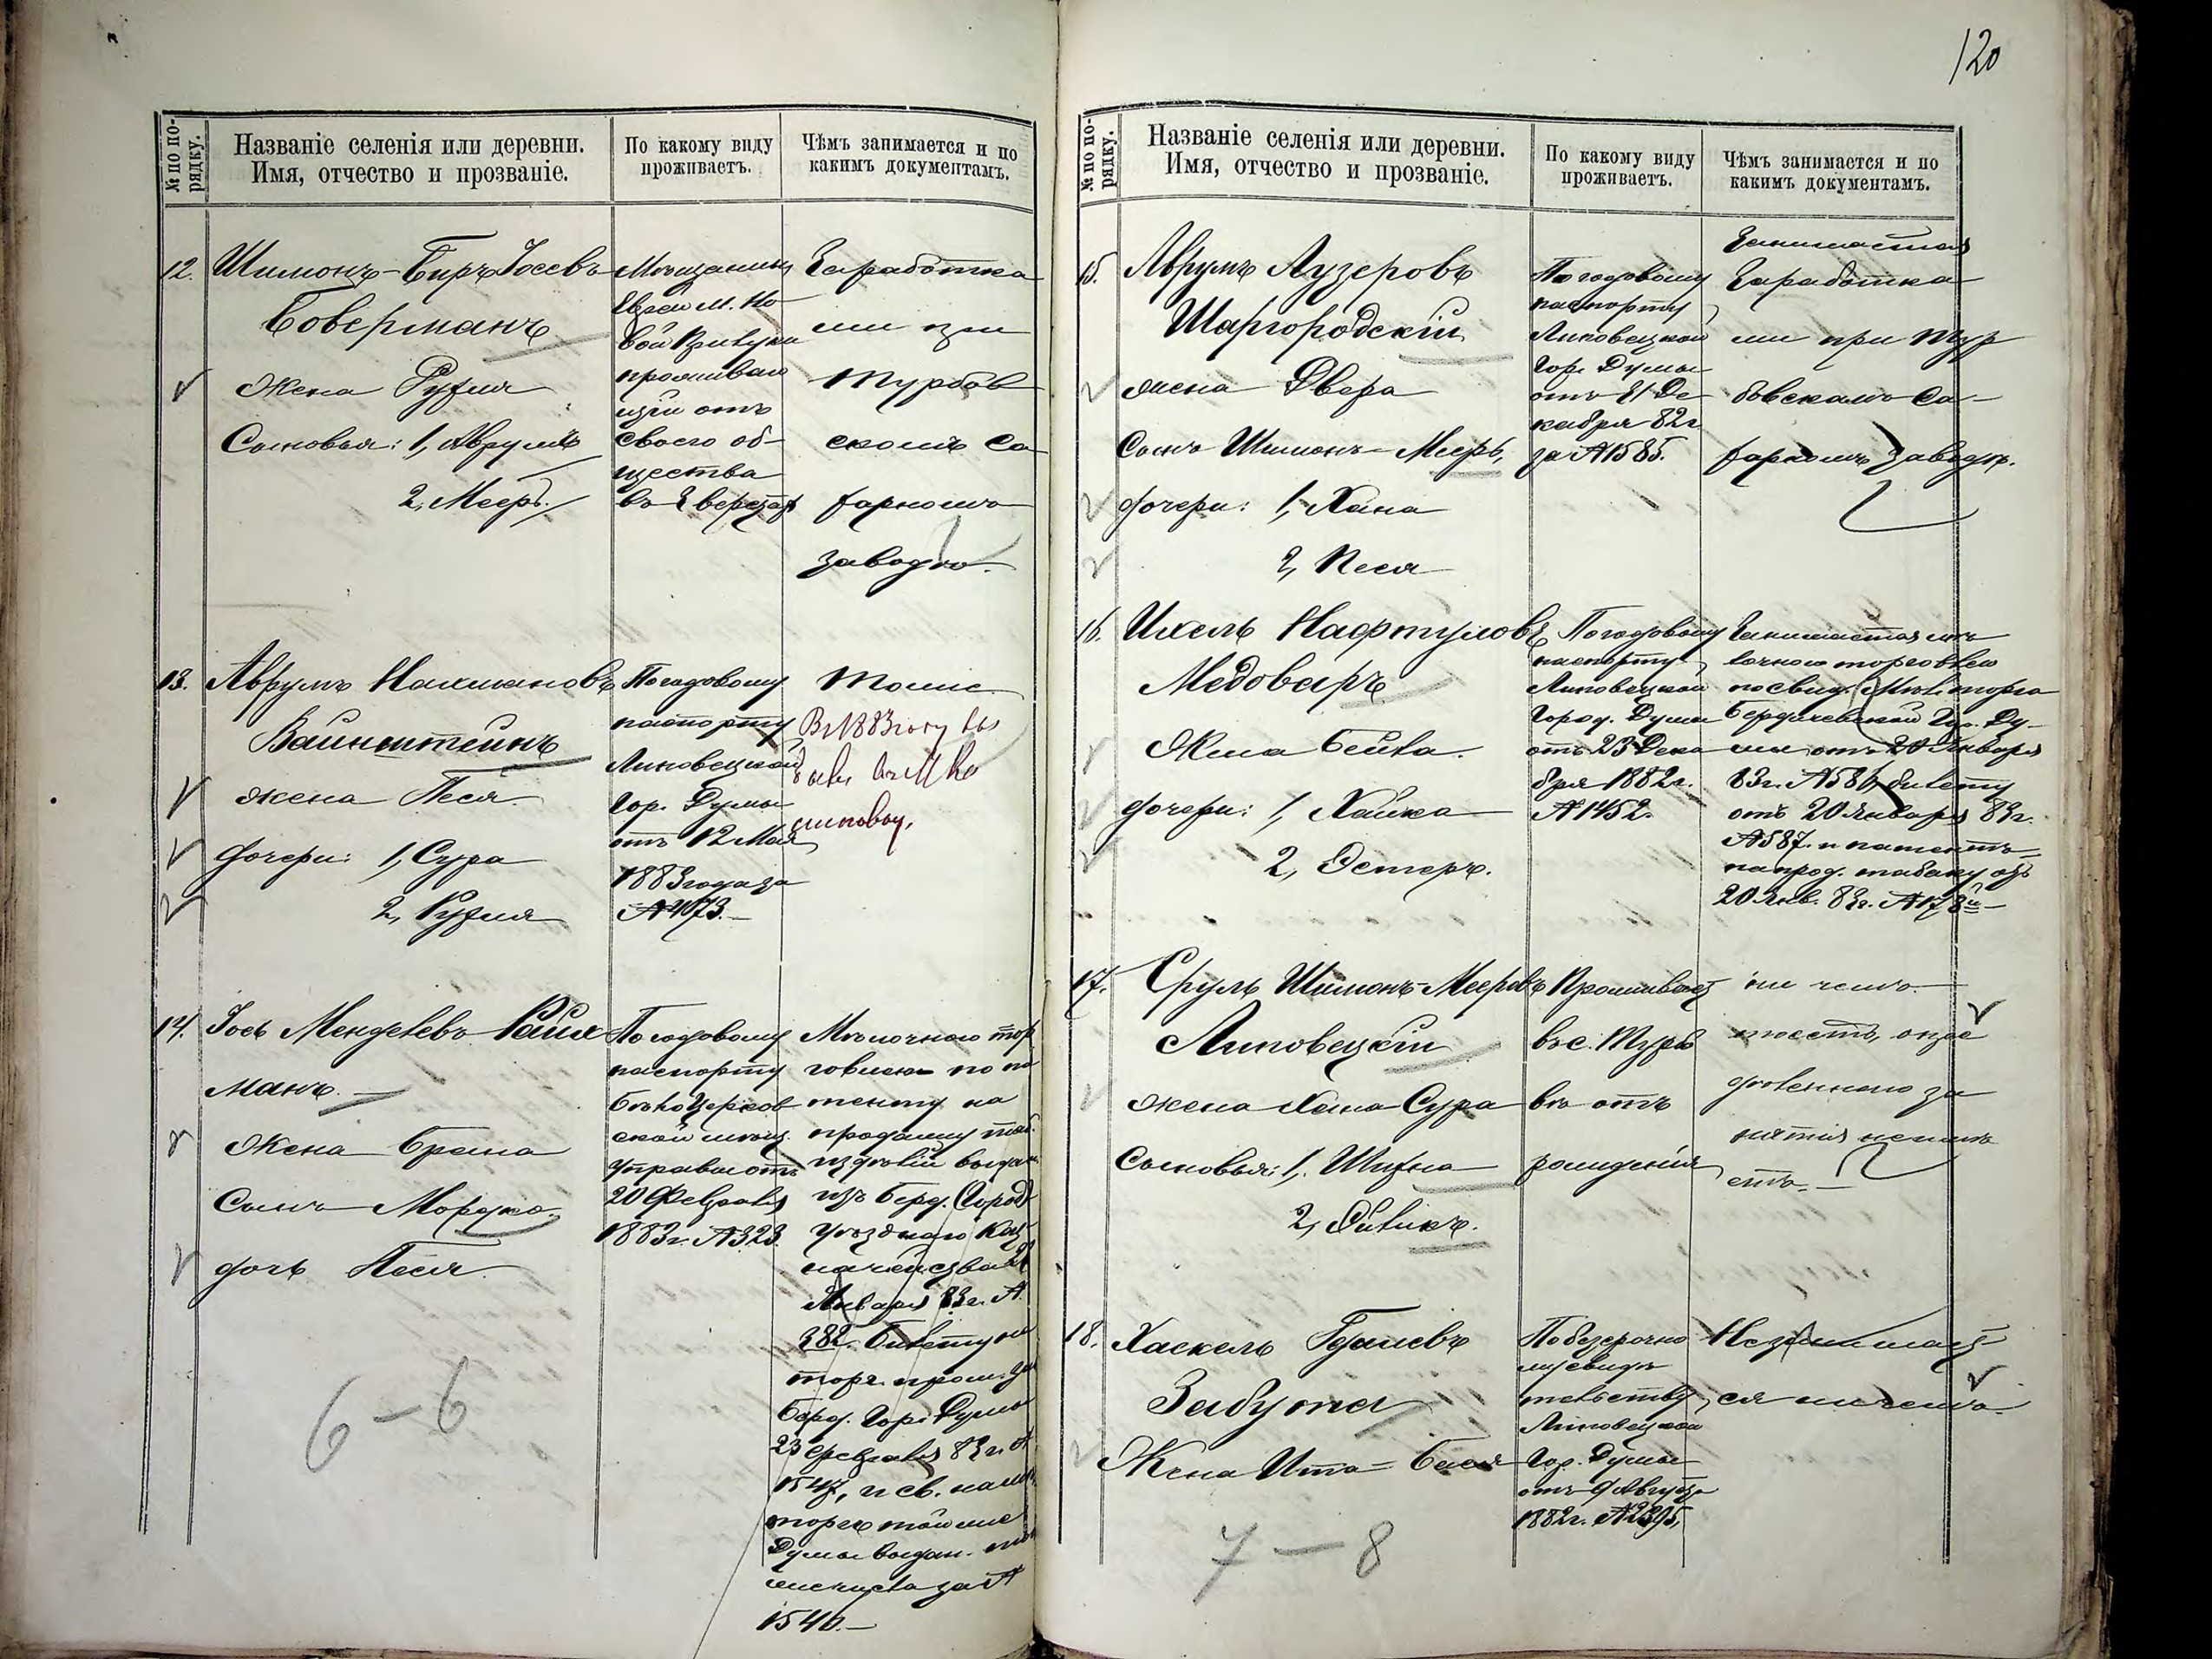 120
№ по по-
рядку.
Названіе селенія или деревни.
Имя, отчество и прозваніе.
По какому виду
проживаетъ.
Чѣмъ занимается и по
какимъ документамъ.
12. Шимонъ-Беръ Іосевъ
Боверманъ
Жена Рухля
Сыновья: 1, Аврумъ
2, Мееръ.
Мѣщанинъ
проживаю
щій отъ
своего об-
щества
Заработка
ми при
Турбов
скомъ са
харномъ
заводѣ.
13. Аврумъ Нахмановъ
Вайнштейнъ
жена Песя
дочери: 1, Сура
2, Рухля
По годовому
паспорту
Липовецкой
Гор. Думы
отъ 12 Мая
1883 года за
№ 4073.
Тоже
Въ 1883 году вы
14. Іось Менделевъ Рай
манъ.
Жена Брана
Сынъ Мордко
дочь Песя
По годовому
паспорту
Бѣлоцерков
ской мѣщ.
управы отъ
20 Февраля
1883 г. № 323.
Мѣлочною тор
говлею по па
тенту на
продажу таб.
издѣлій выдан
изъ Берд. Город
уѣзднаго каз
начейства 21
Января 83 г. №
382. Билету на
торг. пром.
Берд. Гор. Думы
23 Февраля 83 г. №
1547, и св. на мѣл.
торгъ той же
Думы выдан.
за №
1540.
6 – 6
№ по по-
рядку.
Названіе селенія или деревни.
Имя, отчество и прозваніе.
По какому виду
проживаетъ.
Чѣмъ занимается и по
какимъ документамъ.
15. Аврумъ Лузеровъ
Шаргородскій
жена Двера
Сынъ Шимонъ-Мееръ,
дочери: 1, Хана
2, Песя
По годовому
паспорту
Липовецкой
Гор. Думы
отъ 21 Де-
кабря 82 г.
за № 1585.
Занимается
Заработка
ми при Тур
бовскомъ са-
харномъ заводѣ.
16. Ихель Нафтуловъ
Медоваръ
Жена Бейла.
дочери: 1, Хайка
2, Эстеръ.
По годовому
паспорту
Липовецкой
Город. Думы
отъ 23 Дека
бря 1882 г.
№ 1452.
Занимается мѣ
лочною торговлею
по свид. Мѣл. торга
Бердичевской Гор. Ду-
мы отъ 20 Января
83 г. № 586, билету
отъ 20 Января 83 г.
№ 587. и патентъ
на прод. табаку отъ
20 Янв. 83 г. №
17. Сруль Шимонъ-Мееровъ
Липовецкій
жена Хана Сура
Сыновья: 1, Шифна
2, Ойвикъ.
Проживаетъ
въ с. Турбо
въ отъ
рожденія
ни чемъ.
опре
дѣленнаго за
нятія неимѣ
етъ.
18. Хаскель Гдалевъ
Забута
Жена Ита-Бася
По безсрочно
му свидѣ
тельству
Липовецкой
Гор. Думы
отъ 9 Августа
1882 г. № 2395,
Незанимает
ся ни чемъ.
7 – 8